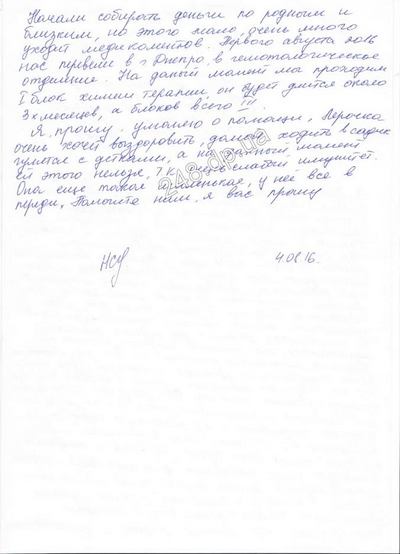 Начали собирать деньги по родным и
близким, но этого мало, очень много
уходит медикоментов. Первого августа 2016
нас перевели в г Днепро, в гемотологическое
отделение. На даный момент мы проходим
I блок химии терапии он будет длится около
3х месяцев, а блоков всего III.
Я прошу, умоляю о помощи, Лерочка
очень хочет выздороветь, домой, ходить в садик
гулять с детками, а на данный момент
ей этого нельзя, т.к. очень слабый имунитет.
Она еще такая маленькая, у неё все в
переди. Помогите нам, я вас прошу
4.08 16.
248.dp.ua